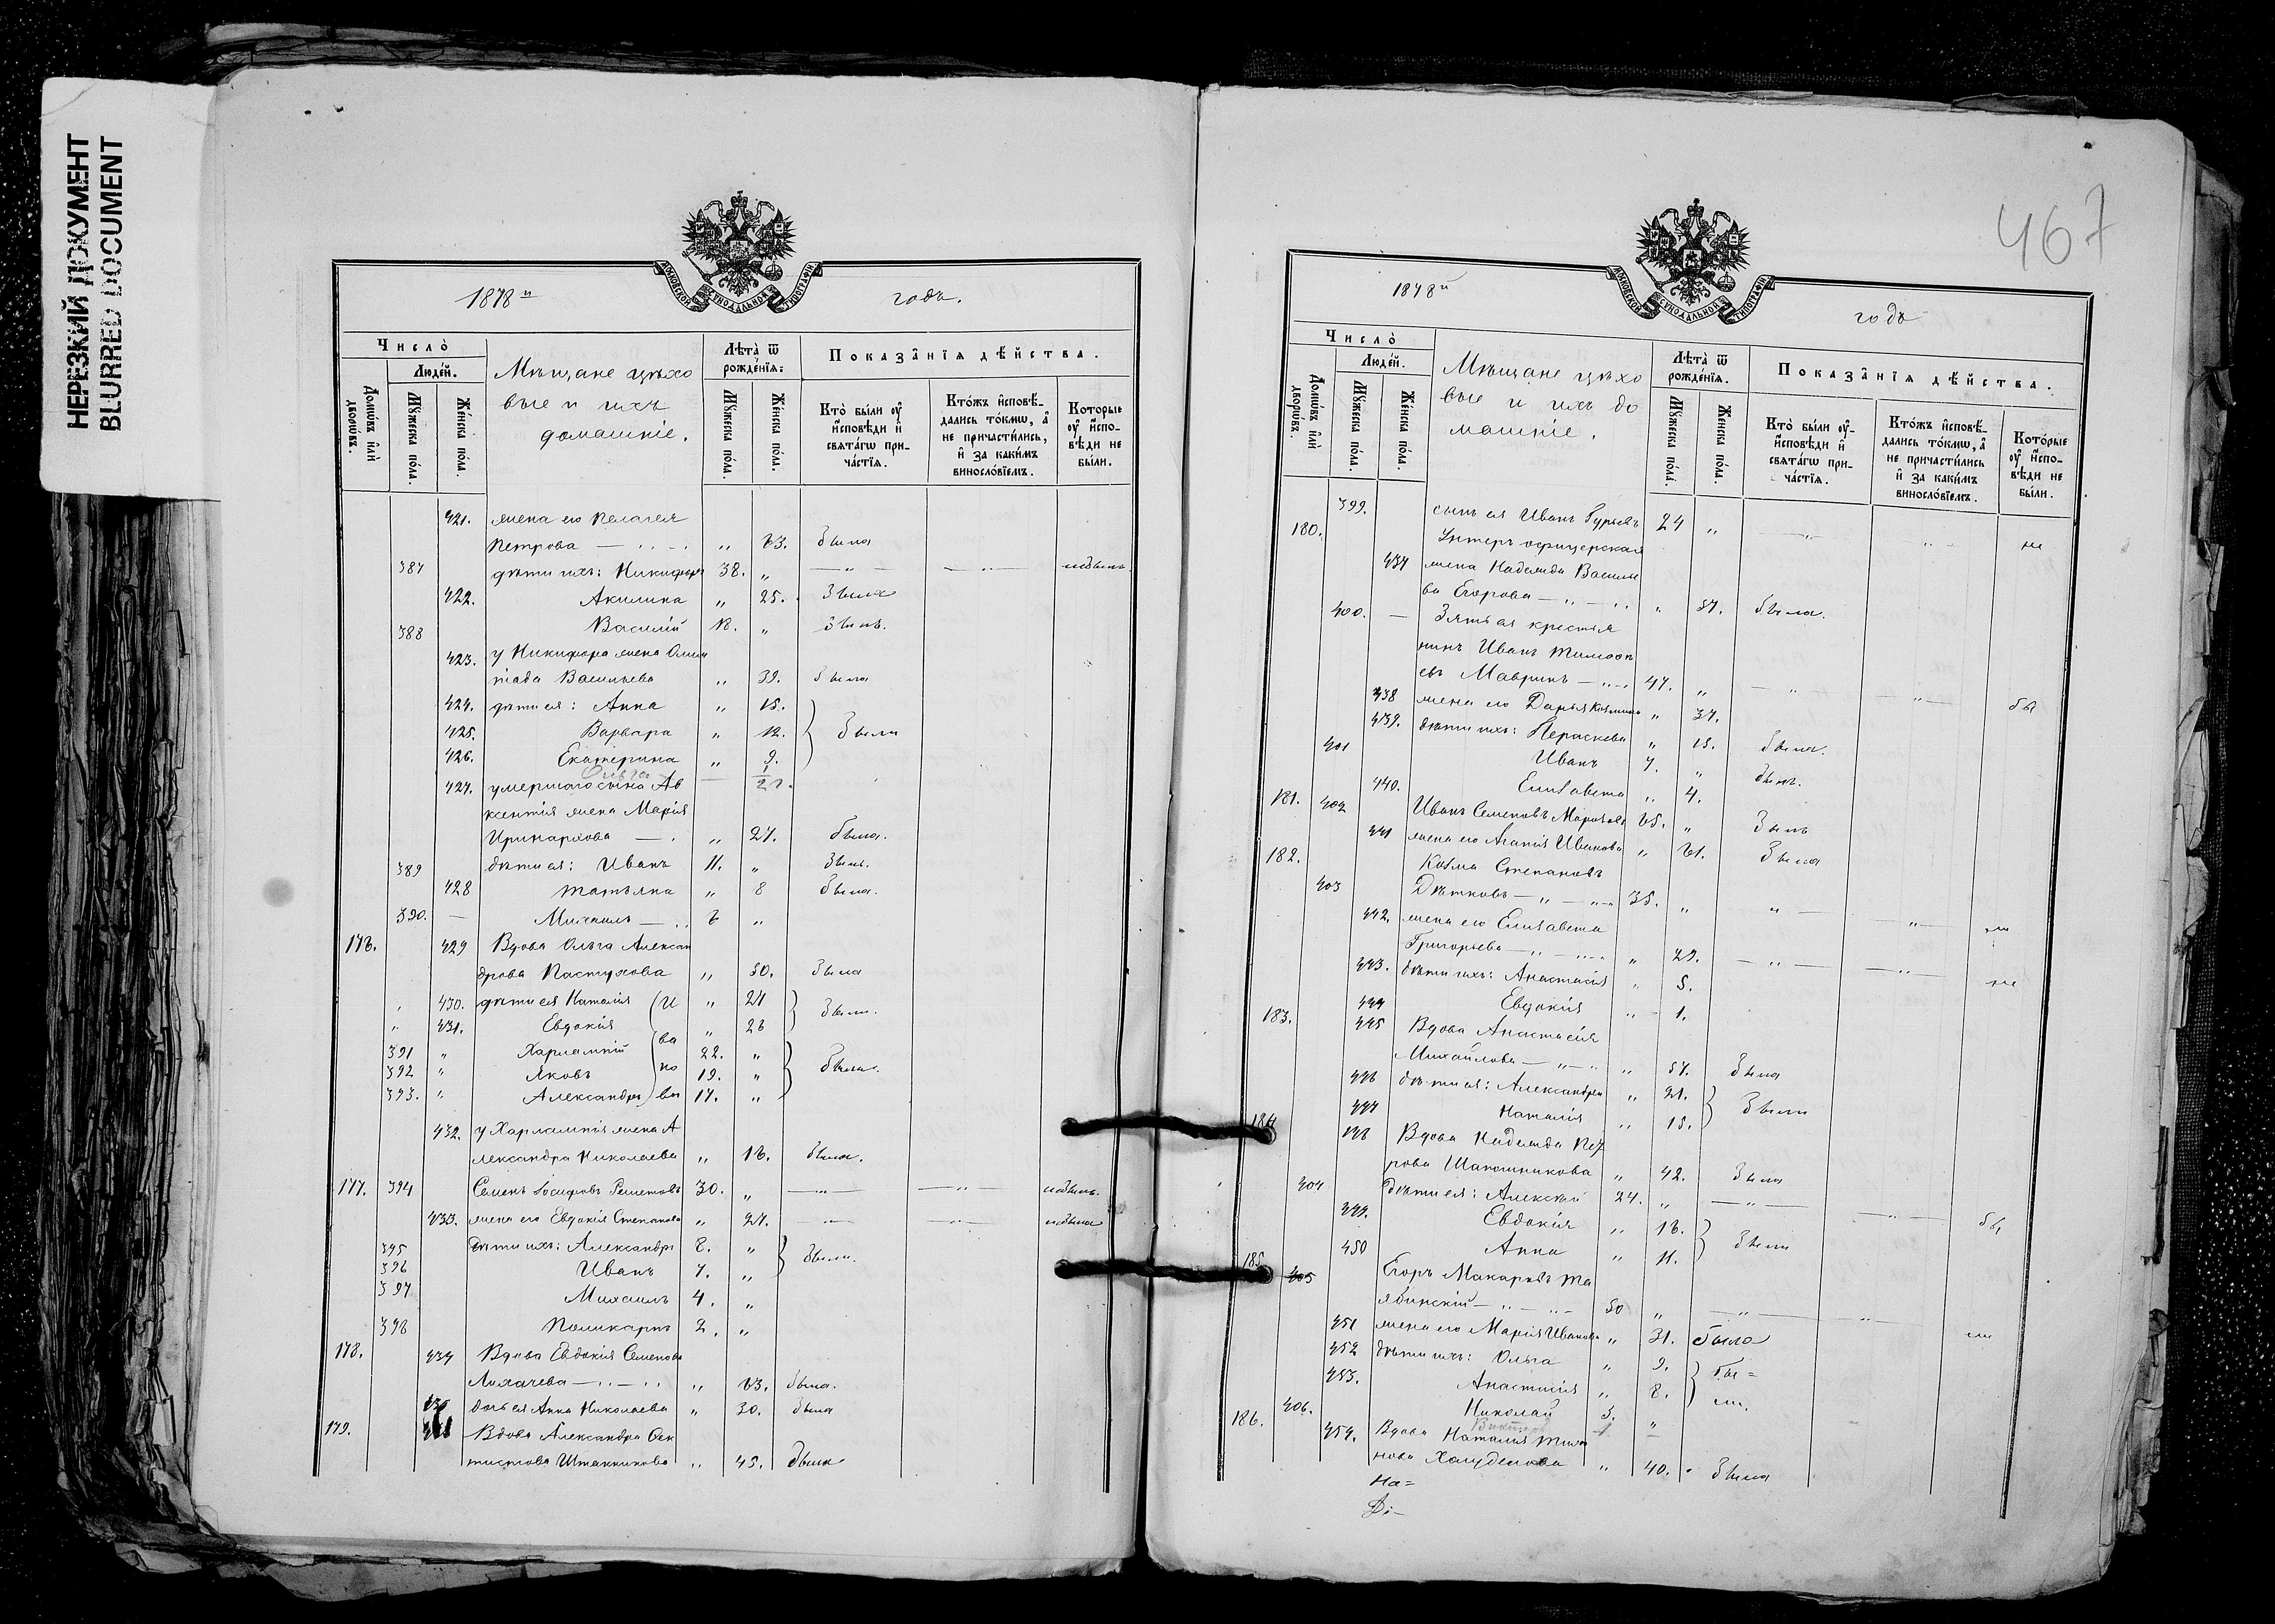 НЕРЕЗКИЙ ДОКУМЕНТ
BLURRED DOCUMENT
МОСКОВСКОЙ СѴНОДАЛЬНОЙ ТИПОГРАФІИ
1878й годъ.
Число̀
Людей.
Домѡвъ и҆лѝ дворѡвъ.
Мꙋжеска по́ла.
Же́нска по́ла.
Мѣщане цѣхо
вые и ихъ
домашніе.
Лѣта̀ ѿ рожде́нїѧ:
Мꙋжеска по́ла.
Же́нска по́ла.
Показа̑нїѧ дѣ́йства.
Кто̀ бы́ли ᲂу҆ и҆сповѣди и҆ свѧта́гѡ прича́стїѧ.
Кто́жъ и҆сповѣ́дались то́кмѡ, а҆ не причасти́лись, и҆ за каки́мъ винослóвїемъ.
Которые ᲂу҆ и҆сповѣди не бы́ли.
421. жена его Пелагея
Петрова — „ 63. была
387 дѣти ихъ: Никифоръ 38. „ — „ — — „ — небылъ.
422. Акилина „ 25. была
388 Василій 18. „ былъ.
423. у Никифора жена Олим
піада Васильева „ 39. была
424. дѣти ея: Анна „ 15.
425. Варвара „ 12. были
426. Екатерина „ 9.
Ольга
427. умершаго сына Ав
ксентія жена Марія
Иринархова — „ 27. была.
389 дѣти ея: Иванъ 11. „ былъ.
428 Татьяна „ 8 была.
390. — Михаилъ — 6 „
176. 429 Вдова Ольга Алексан
дрова Пастухова „ 50. была
430. дѣти ея Наталія (И „ 27
„ 431. Евдокія ва „ 26 были.
391 „ Харлампій 22. „
392 „ Яковъ но 19. „ были.
393. „ Александръ) вы 17. „
432. у Харлампія жена А
лександра Николаева „ 18. была.
177. 394 Семенъ Іосифовъ Решетовъ 30. „ — „ — — „ — небылъ.
433. жена его Евдокія Степанова „ 27. — „ — — „ — небыла
395 Дѣти ихъ: Александръ 8. „
396 Иванъ 7. „ были.
397 Михаилъ 4. „
398 Поликарпъ 2. „
178. 434 Вдова Евдокія Семенова
Лихачева — „ — „ „ 63. была.
435 дочь ея Анна Николаева „ 30. была
179. Вдова Александра Фек
тистова „ 45. была
467
МОСКОВСКОЙ СѴНОДАЛЬНОЙ ТИПОГРАФІИ
1878й годъ
Число̀
Людей.
Домѡвъ и҆лѝ дворѡвъ.
Мꙋжеска по́ла.
Же́нска по́ла.
Мѣщане цѣхо
вые и ихъ до
машніе.
Лѣта̀ ѿ рожде́нїѧ.
Мꙋжеска по́ла.
Же́нска по́ла.
Показа̑нїѧ дѣ́йства.
Кто̀ бы́ли ᲂу҆ и҆сповѣди и҆ свѧта́гѡ прича́стїѧ.
Кто́жъ и҆сповѣ́дались то́кмѡ, а҆ не причасти́лись и҆ за каки́мъ винослóвїемъ.
Которые ᲂу҆ и҆сповѣди не бы́ли.
399. сынъ ея Иванъ Гурьевъ 24 „ — „ — „ — не
180. Унтеръ офицерская
437 жена Надежда Василье
ва Егорова — „ — „ „ 57. была.
400. — Зять ея крестья
нинъ Иванъ Тимоѳе
евъ Мавринъ — „ 47. „ — „ — „ — бы
438 жена его Дарья Козмина „ 37.
439. дѣти ихъ: Пераскева „ 15. была.
401 Иванъ 7. „ былъ.
440. Елизавета „ 4.
181. 402 Иванъ Семеновъ 65. „ былъ
441 жена его Агапія Иванова „ 61. была
182. Козма Степановъ
403 Дѣтковъ — „ — „ 35. „ „ — „ — ли
442. жена его Елизавета
Григорьева — „ — „ „ 29. — „ — — „ — не
443. дѣти ихъ: Анастасія „ 5.
444 Евдокія „ 1.
183. 445 Вдова Анастасія
Михайлова — „ — „ 57. была
446 дѣти ея: Александра „ 21.
447 Наталія „ 15. были
184 448 Вдова Надежда Пет
рова Шапошникова „ 42. была
404 Дѣти ея: Алексѣй 24. „ — „ — — „ — бы
449. Евдокія „ 16.
450 Анна „ 11. были
185 405 Егоръ Макаровъ
50 „ — „ — „ ли
451 жена его Марія Иванова „ 31. была
452 дѣти ихъ: Ольга „ 9. бы=
453. Анастасія „ 8. ли.
406. Николай 3. „
186. 454. Вдова Наталія
нова „ 40. была
На=
Ді–